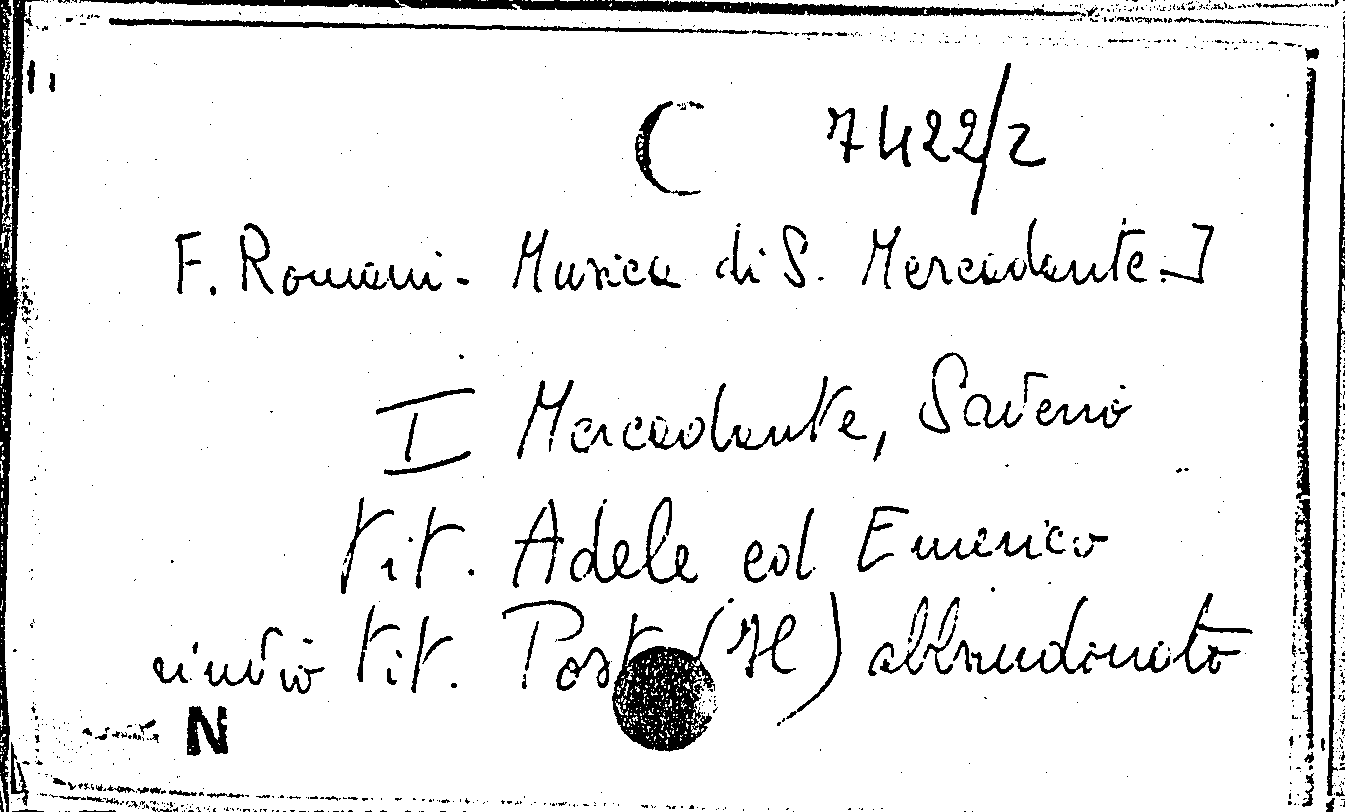 C 7422/2
F. Romani - Musica di S. Mercadante.]
I Mercadante, Saverio
tit. Adele ed Emerico
rinvio tit. Post (Il) abbandonato
N